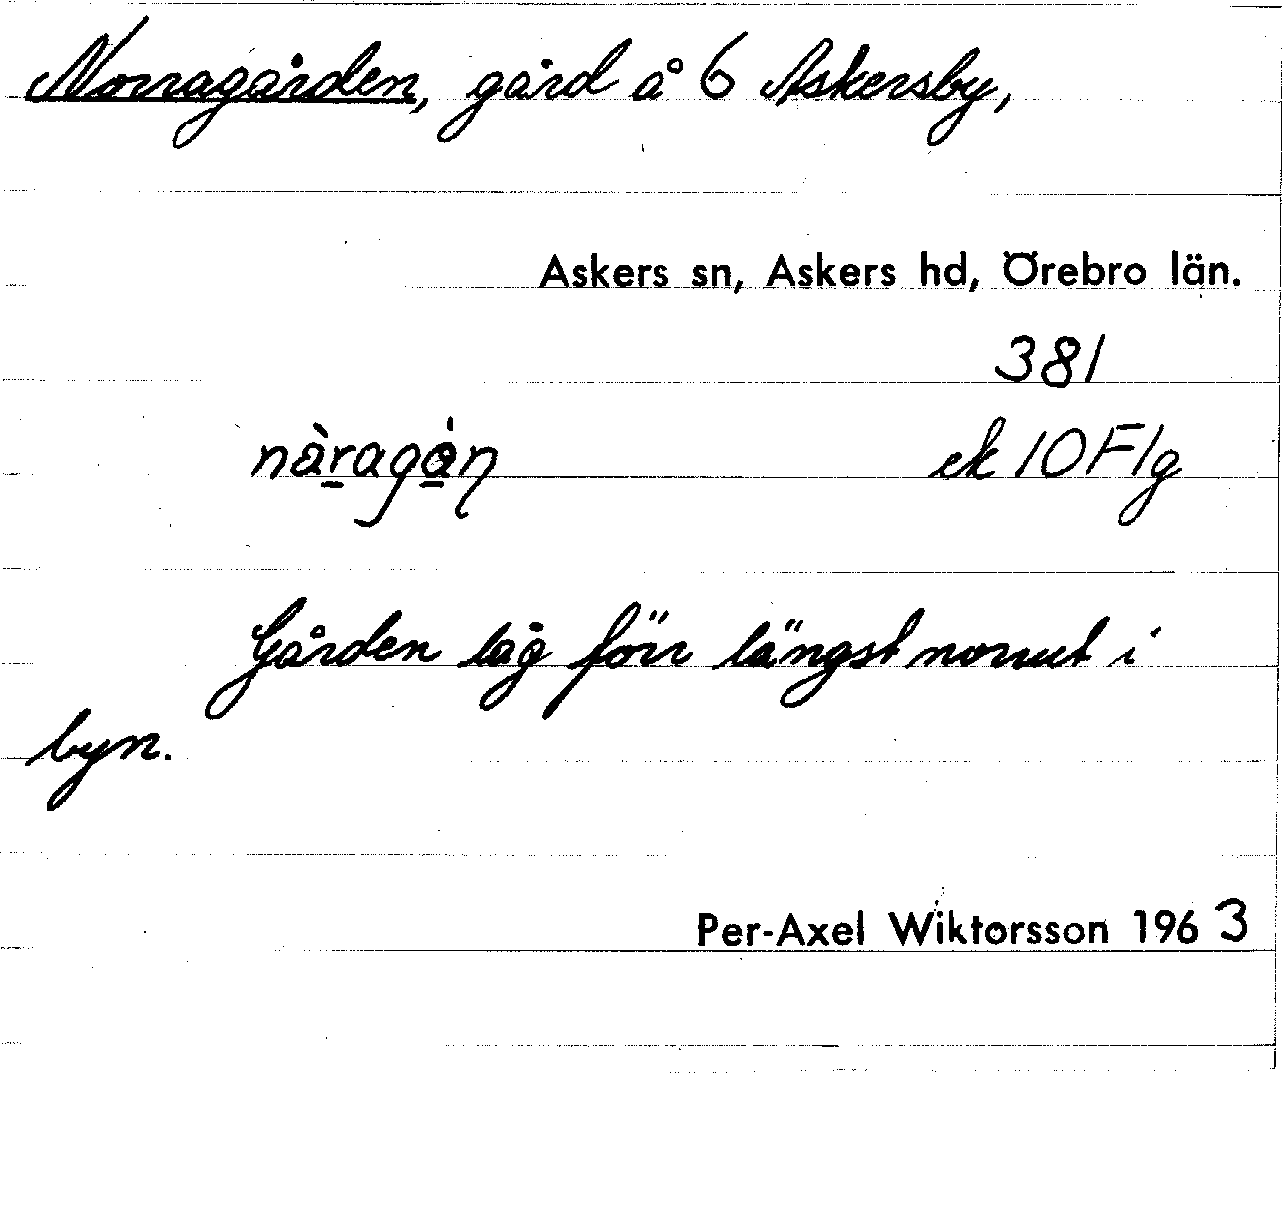 Norragården, gård å 6 Askersby,
Askers sn, Askers hd, Örebro län.
381
nàragȧn ek 10F1g
Gården låg förr längst norrut i
byn.
Per-Axel Wiktorsson 1963